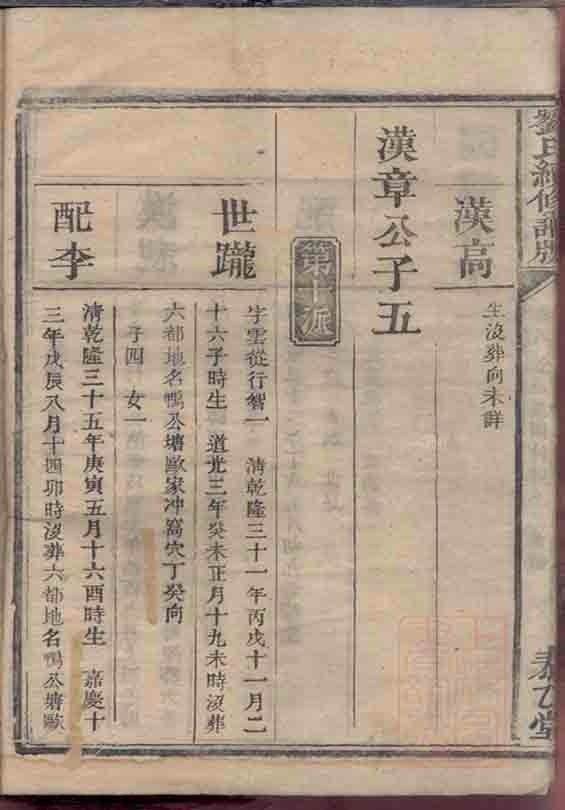 劉氏續修譜牒
漢高
生沒葬向未詳
漢章公子五
第十派
世躘
字雲從行智一 清乾隆三十一年丙戌十一月二
十六子時生 道光三年癸未正月十九未時沒葬
六都地名鴨公塘歐家冲窩穴丁癸向
子四 女一
配李
清乾隆三十五年庚寅五月十六酉時生 嘉慶十
三年戊辰八月十四卯時沒葬六都地名鴨公塘歐
泰乙堂